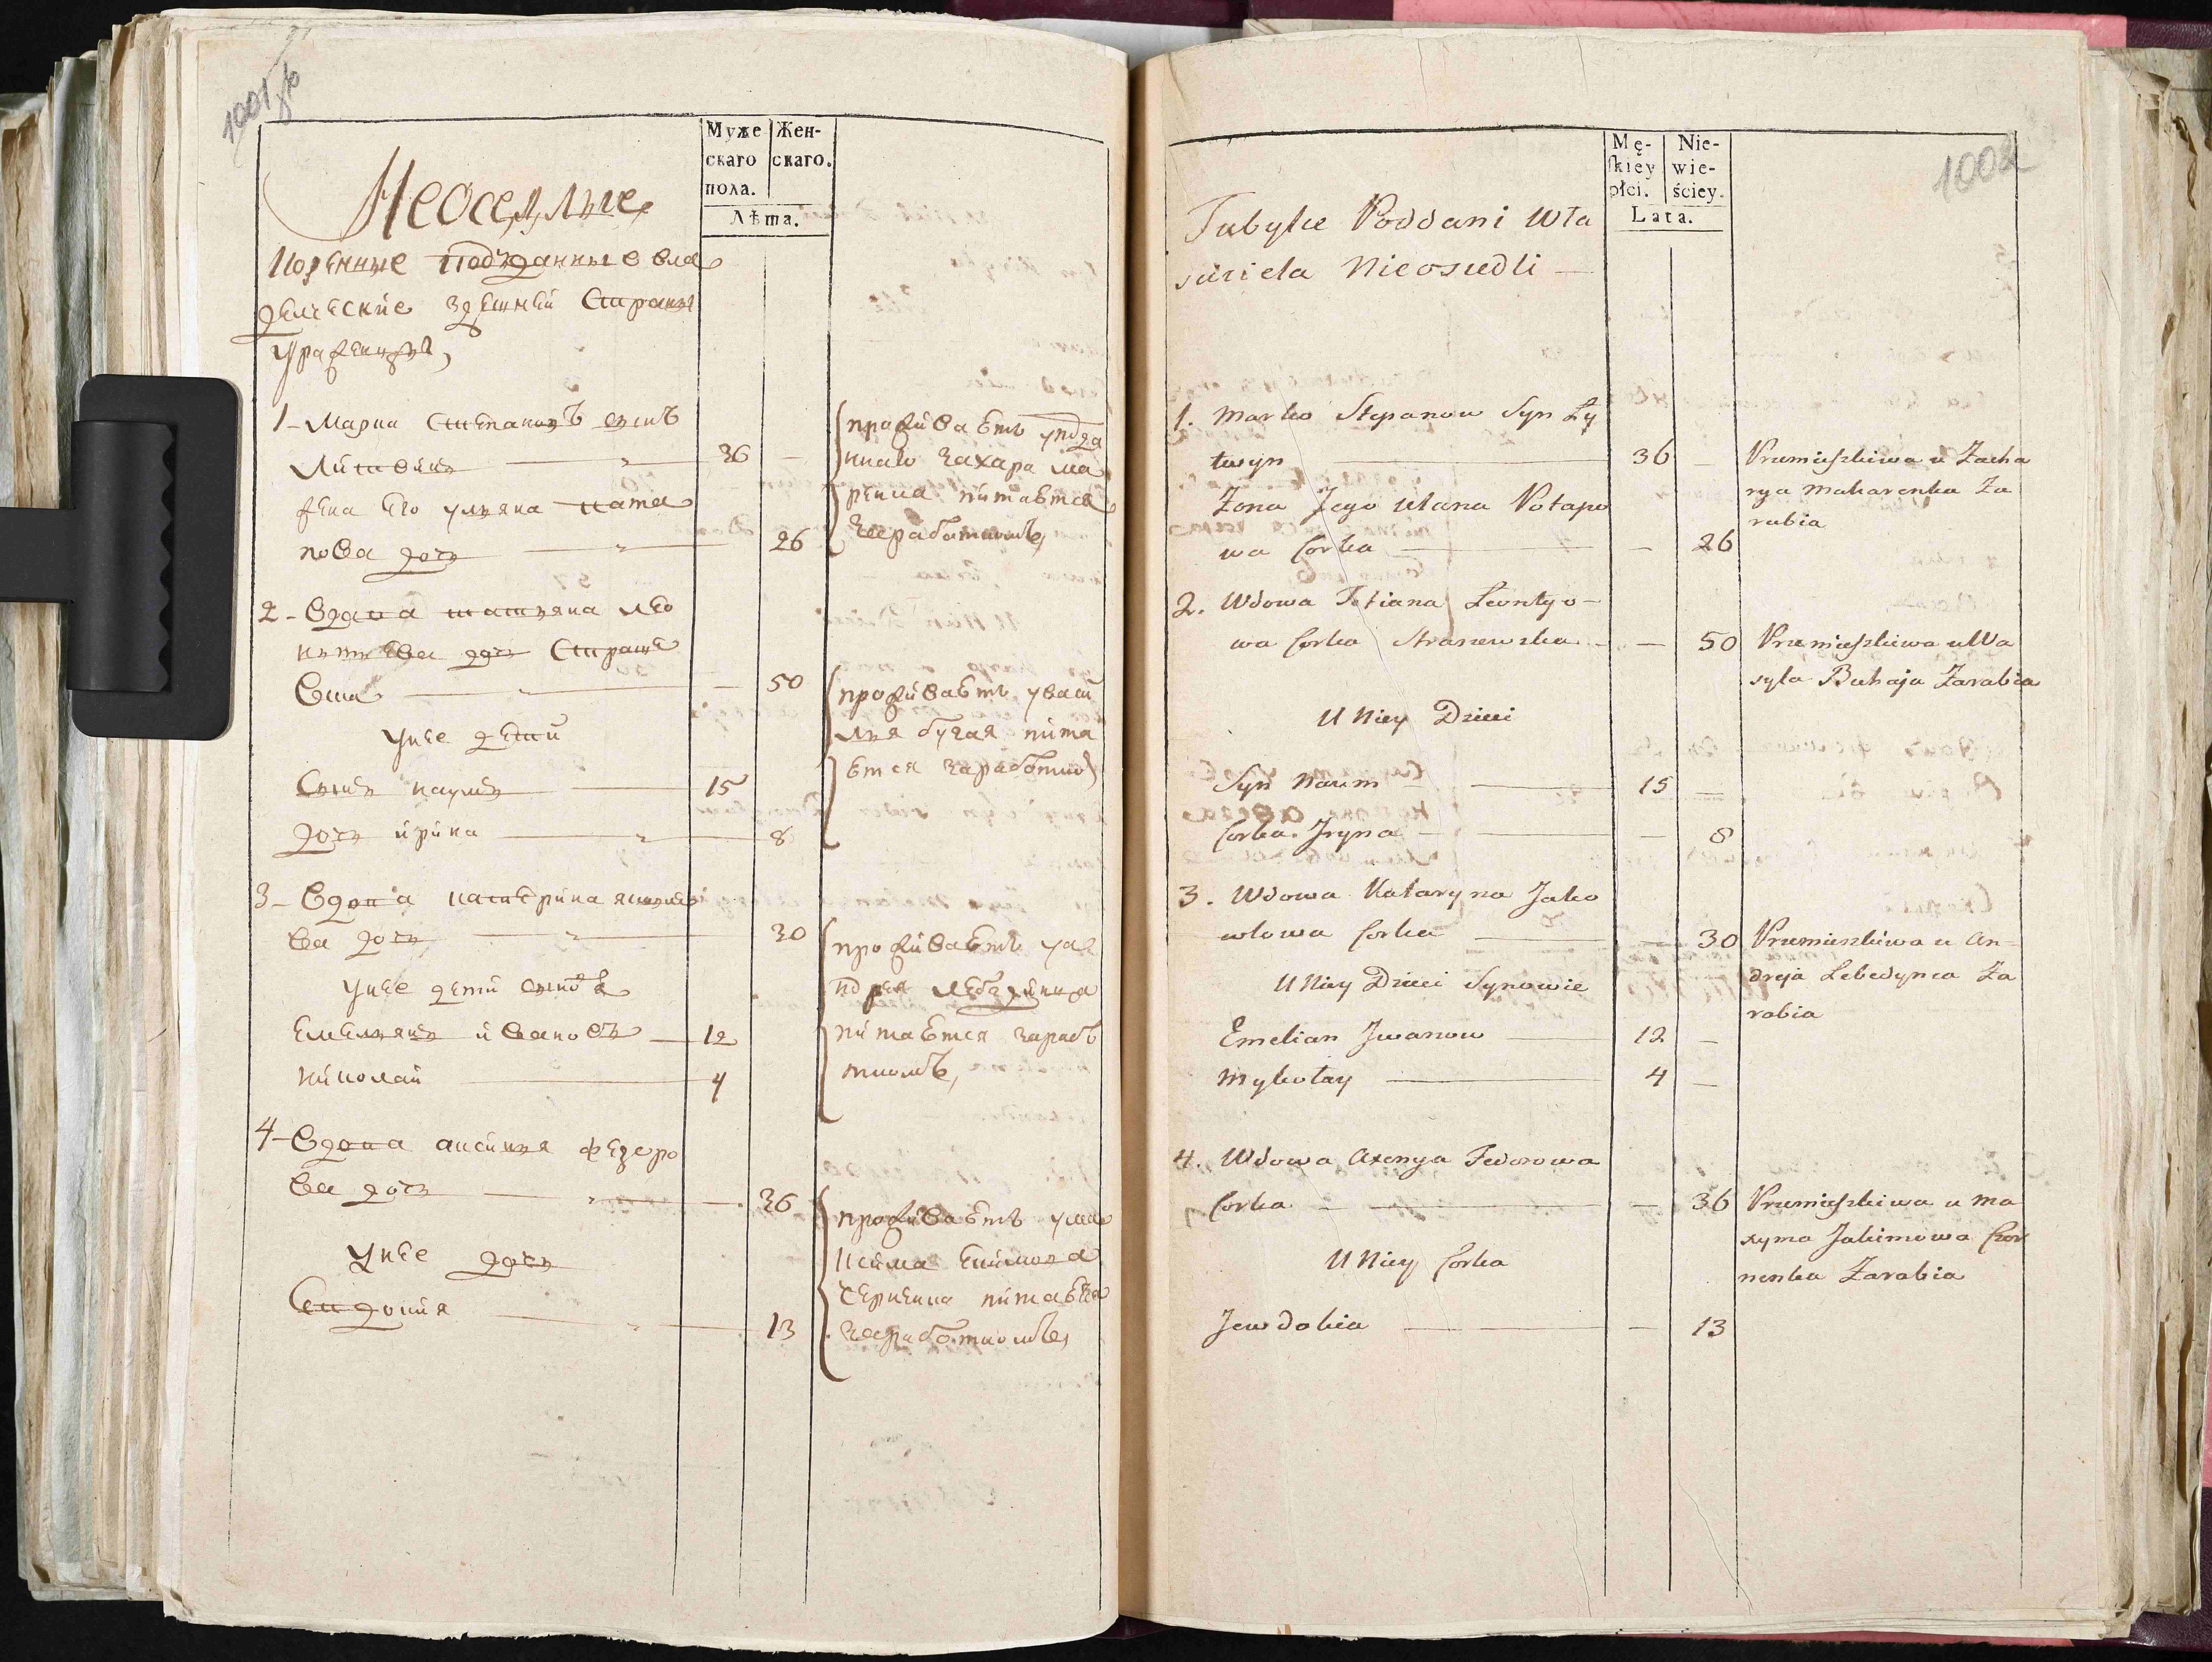 1001 об
Муже Жен-
скаго скаго.
пола.
Лѣта.
Неоселлые
Коренные подданные вла
делческие здешней Страны
Уроженцы,
1 - Марко Степановъ сынъ
Литвинъ - 36 -
жена его Уляна Пота
пова дочъ - 26
проживаетъ у подда
ннаго Захара Ма
ренка питается
Заработкомъ,
2 - Вдова Татияна Лео
нтиева дочъ Страше
вска - - 50
У нее дети
Сынъ Наумъ - 15
дочъ Ирина - 8
проживаетъ у Васи
лия Бугая пита
ется заработко
3 - Вдова Катерина Яковле
ва дочъ - 30
У нее дети
Емельянъ Ивановъ - 12
Николай - 4
проживаетъ у А
ндрея Лебединца
питается зарабо
ткомъ,
4 - Вдова Аксиния Федоро
ва дочъ - 36
У нее дочъ
Евдокия - 13
проживаетъ у Ма
ксима Екимова
Черненка питается
Заработкомъ,
1002
Mę- Nie-
skiey wie-
płci. ściey.
Lata.
Tubylce Poddani Wła
sciciela Nieosiedli -
1. Marko Stepanow Syn Ly
twyn - 36 -
Zona Jego Ulana Potapo
wa Corka - - 26
Przemieszkiwa u Zacha
rya Makarenka Za
rabia
2. Wdowa Tatiana Leontyo-
wa Corka Straszewska - - 50
Przemieszkiwa u Wa
syla Buhaja Zarabia
U Niey Dzieci
Syn Naum - 15 -
Corka Jryna - - 8
3. Wdowa Kataryna Jako
wlowa Corka - - 30
Przemieszkiwa u An-
dreja Lebedynca Za
rabia
U Niey Dzieci Synowie
Emelian Jwanow - 12 -
Mykołay - 4 -
4. Wdowa Axenya Fedorowa
Corka - - 36
Przemieszkiwa u Ma
xyma Jakimowa Czor
nenka Zarabia
U Niey Corka
Jewdokia - - 13